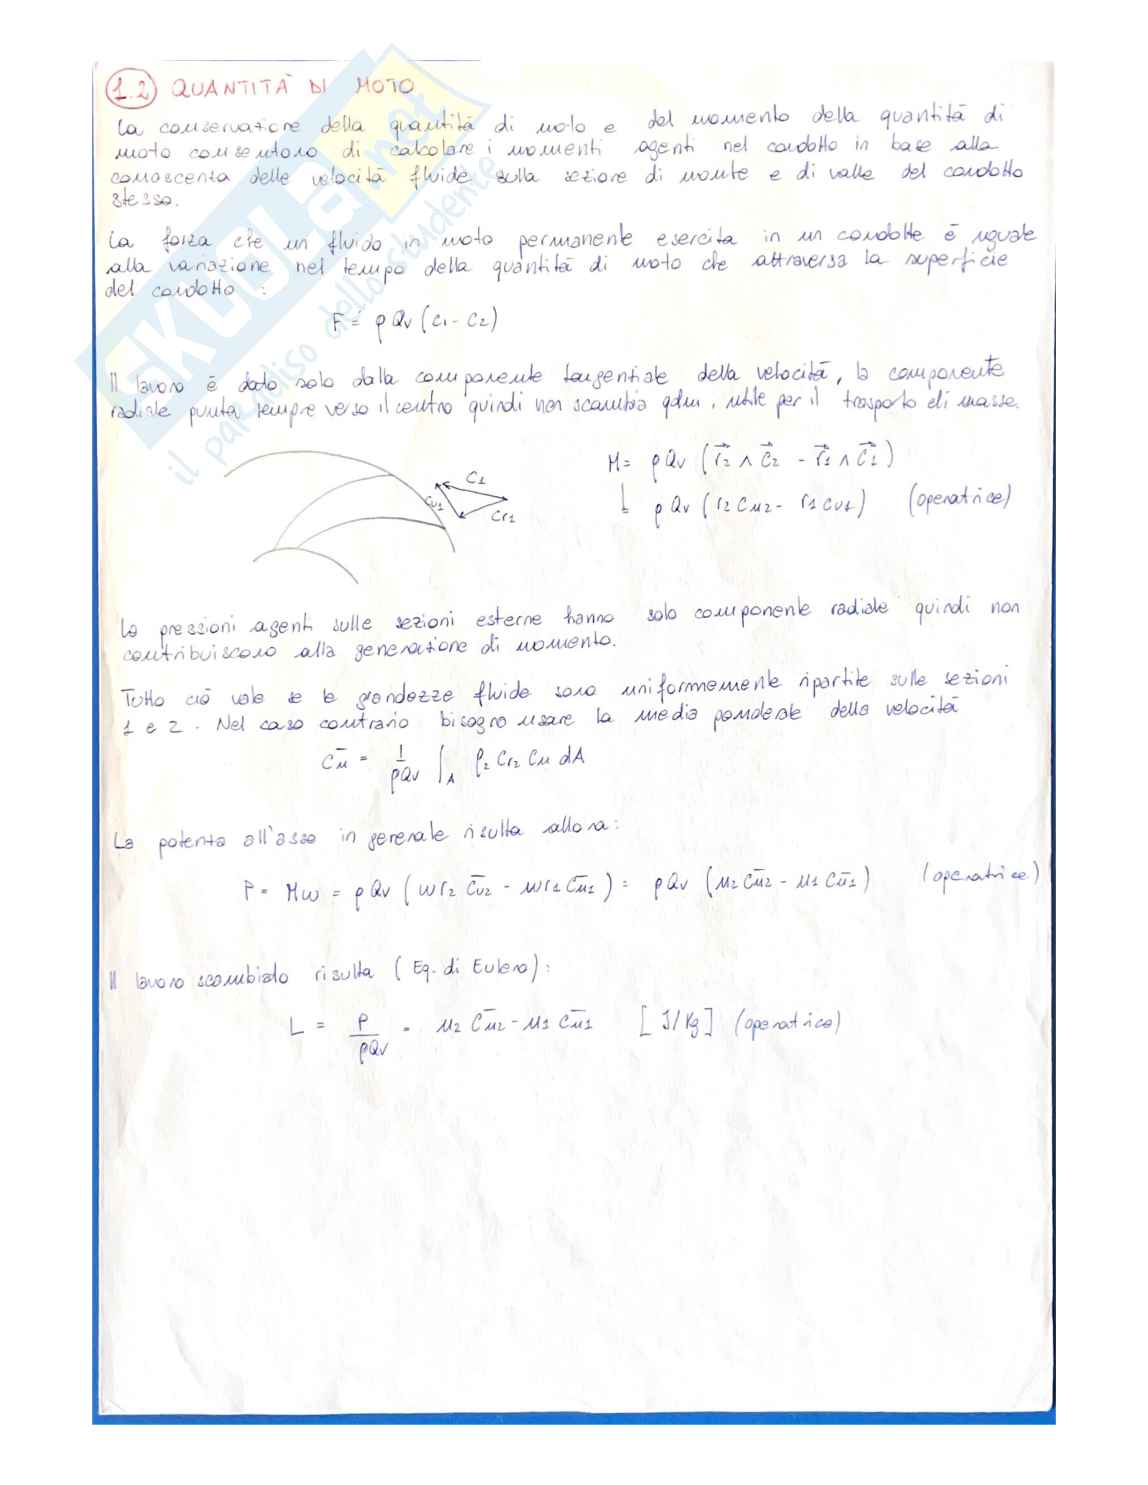 1.2 QUANTITÀ DI MOTO
La conservazione della quantità di moto e del momento della quantità di
moto consentono di calcolare i momenti agenti nel condotto in base alla
conoscenza delle velocità fluide sulla sezione di monte e di valle del condotto
stesso.
La forza che un fluido in moto permanente esercita in un condotto è uguale
alla variazione nel tempo della quantità di moto che attraversa la superficie
del condotto :
F = ρQv (c1 - c2)
Il lavoro è dato solo dalla componente tangenziale della velocità, la componente
radiale punta sempre verso il centro quindi non scambia qdm, utile per il trasporto di masse.
M = ρQv (r⃗2 ∧ c⃗2 - r⃗1 ∧ c⃗1)
ρQv (r2 cu2 - r1 cu1) (operatrice)
C1
Cu1
Cr1
Le pressioni agenti sulle sezioni esterne hanno solo componente radiale quindi non
contribuiscono alla generazione di momento.
Tutto ciò vale se le grandezze fluide sono uniformemente ripartite sulle sezioni
1 e 2. Nel caso contrario bisogna usare la media ponderale della velocità
c̄u = 1/ρQv ∫A ρ2 cr2 cu dA
La potenza all'asse in generale risulta allora:
P = Mω = ρQv (ωr2 c̄u2 - ωr1 c̄u1) = ρQv (u2 c̄u2 - u1 c̄u1) (operatrice)
Il lavoro scambiato risulta (Eq. di Eulero):
L = P/ρQv = u2 c̄u2 - u1 c̄u1 [J/Kg] (operatrice)
SKUOLA.net
il paradiso dello studente